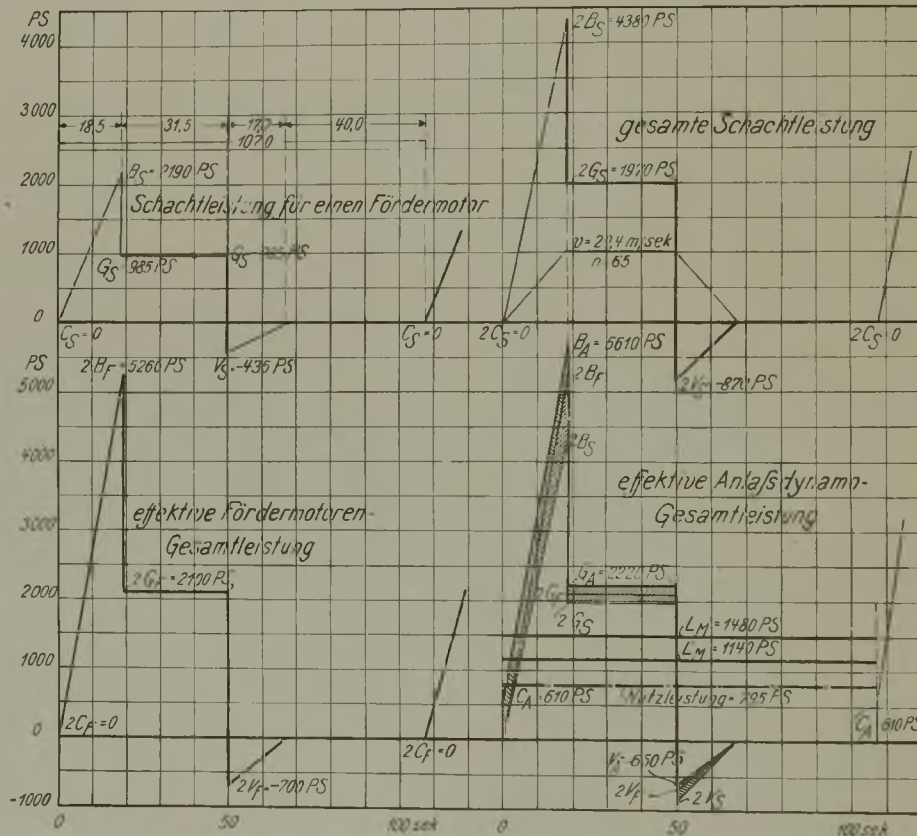 PS
4000
3000
2000
1000
0
18,5
31,5
17,0
40,0
107,0
B_S = 2190 PS
Schachtleistung für einen Fördermotor
G_S
985 PS
G_S
C_S = 0
V_S = -435 PS
C_S = 0
2B_S = 4380 PS
gesamte Schachtleistung
2G_S = 1970 PS
v = 20,4 m/sek
n 65
2C_S = 0
2V_S -870 PS
2C_S 0
PS
5000
4000
3000
2000
1000
0
-1000
2B_F = 5260 PS
effektive Fördermotoren-
Gesamtleistung
2G_F = 2100 PS
2C_F = 0
2V_F = -700 PS
2C_F = 0
B_A = 5610 PS
2B_F
B_S
effektive Anlaßdynamo-
Gesamtleistung
G_A = 2220 PS
2G_F
2G_S
L_M = 1480 PS
L_M = 1140 PS
C_A = 610 PS
Nutzleistung = 795 PS
C_A 610 PS
V_A -650 PS
2V_F
2V_S
0
50
100 sek
0
50
100 sek